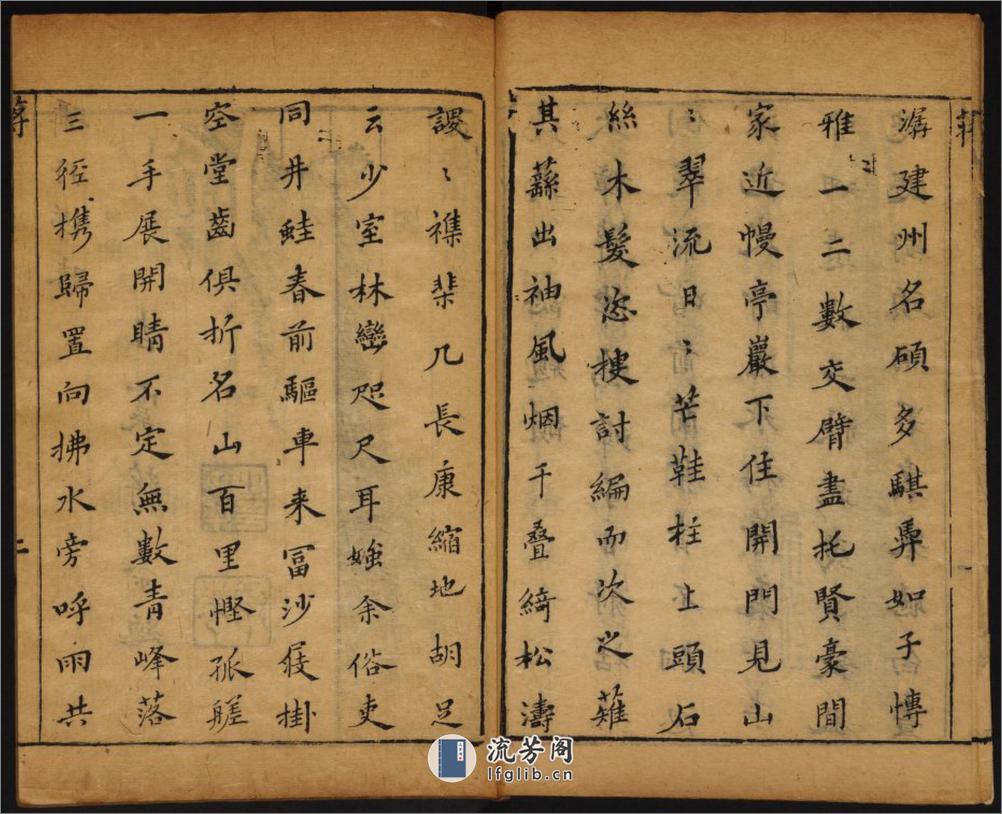 潺建州名碩多騏驥如子慱
雅一二數交臂盡托賢豪間
家近幔亭巖下住開門見山
〻翠流日〻芒鞋柱上頭石
絲木髮恣搜討編而次之薙
其蘇出袖風烟千叠綺松濤
謖〻襍棐几長康縮地胡足
云少室林巒咫尺耳嗤余俗吏
同井蛙春前驅車来冨沙屐掛
空堂齒俱折名山百里慳孤艖
一手展開睛不定無數青峰落
三徑携歸置向拂水旁呼雨共
二
流芳阁
lfglib.cn